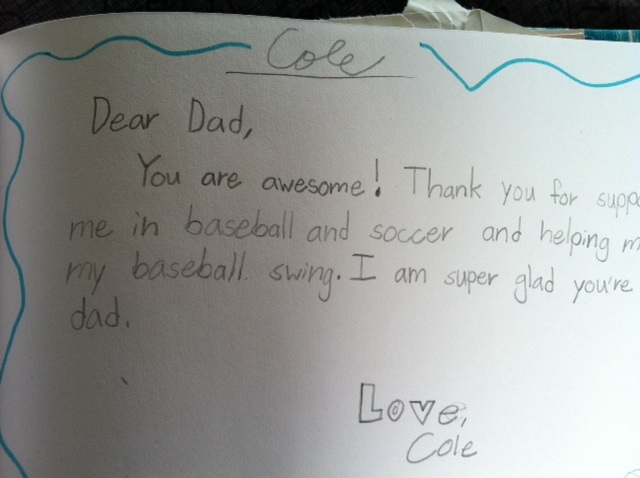 Cole
Dear Dad,
You are awesome! Thank you for
me in baseball and soccer and helping
my baseball swing. I am super glad you're
dad.
Love,
Cole